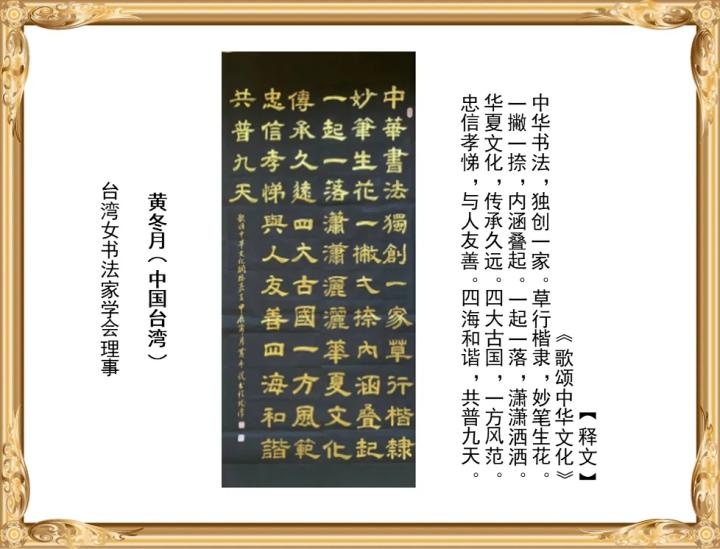 【释文】
《歌颂中华文化》
中华书法，独创一家。草行楷隶，妙笔生花。
一撇一捺，内涵叠起。一起一落，潇潇洒洒。
华夏文化，传承久远。四大古国，一方风范。
忠信孝悌，与人友善。四海和谐，共普九天。
中華書法獨創一家草行楷隸
妙筆生花一撇弌捺內涵叠起
一起一落瀟瀟灑灑華夏文化
傳承久遠四大古國一方風範
忠信孝悌與人友善四海和諧
共普九天
歌頌中華文化
黄冬月（中国台湾）
台湾女书法家学会理事